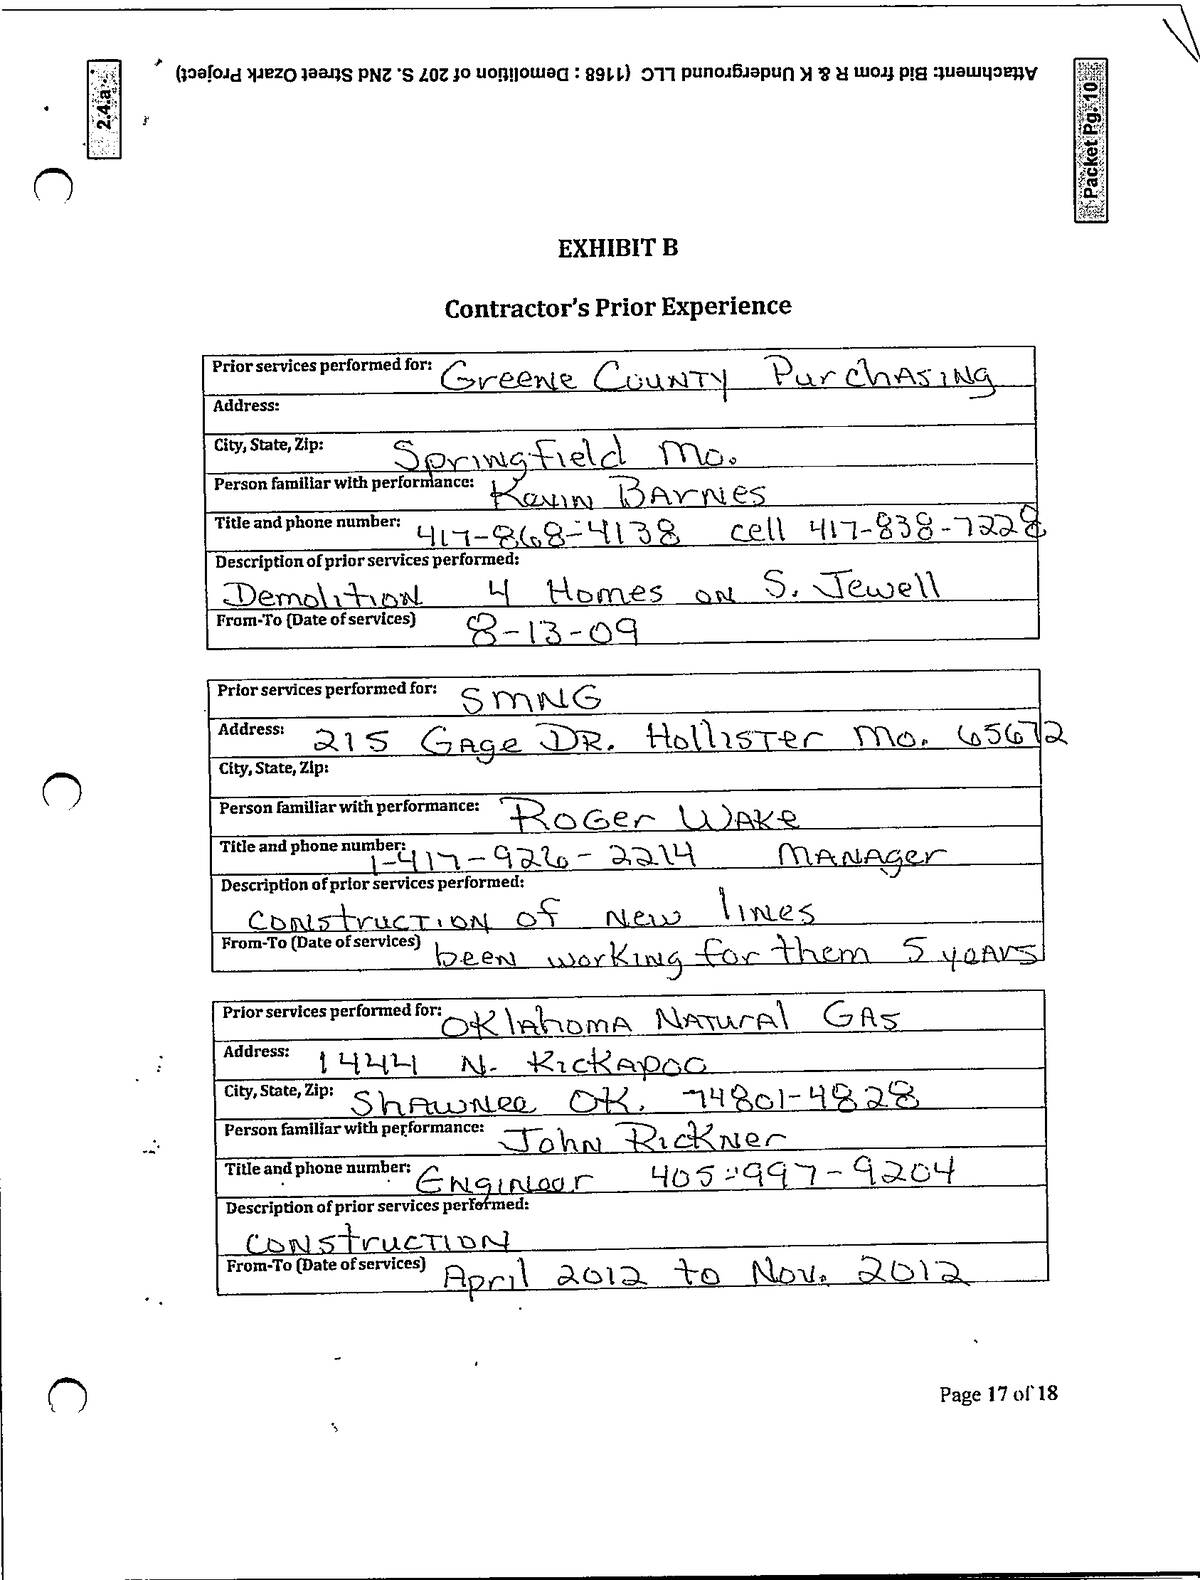 Attachment: Bid from R & K Underground LLC (1168 : Demolition of 207 S. 2Nd Street Ozark Project)
2.4.a
Packet Pg. 10
EXHIBIT B
Contractor's Prior Experience
Prior services performed for: Greene County Purchasing
Address:
City, State, Zip: Springfield Mo.
Person familiar with performance: Kevin Barnes
Title and phone number: 417-868-4138 cell 417-838-7228
Description of prior services performed:
Demolition 4 Homes on S. Jewell
From-To (Date of services) 8-13-09
Prior services performed for: SMNG
Address: 215 Gage DR. Hollister Mo. 65672
City, State, Zip:
Person familiar with performance: Roger Wake
Title and phone number: 1-417-926-2214 Manager
Description of prior services performed:
construction of new lines
From-To (Date of services) been working for them 5 years
Prior services performed for: Oklahoma Natural Gas
Address: 1444 N. Kickapoo
City, State, Zip: Shawnee OK. 74801-4828
Person familiar with performance: John Rickner
Title and phone number: Engineer 405-997-9204
Description of prior services performed:
construction
From-To (Date of services) April 2012 to Nov. 2012
Page 17 of 18